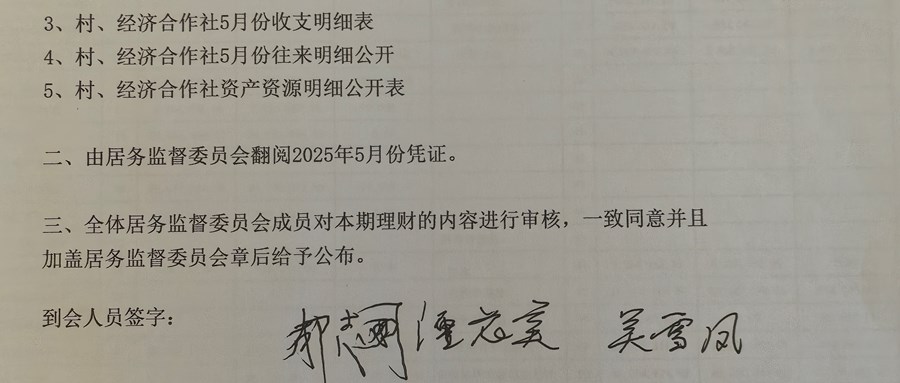 3、村、经济合作社5月份收支明细表
4、村、经济合作社5月份往来明细公开
5、村、经济合作社资产资源明细公开表
二、由居务监督委员会翻阅2025年5月份凭证。
三、全体居务监督委员会成员对本期理财的内容进行审核，一致同意并且
加盖居务监督委员会章后给予公布。
到会人员签字： 吴雪凤